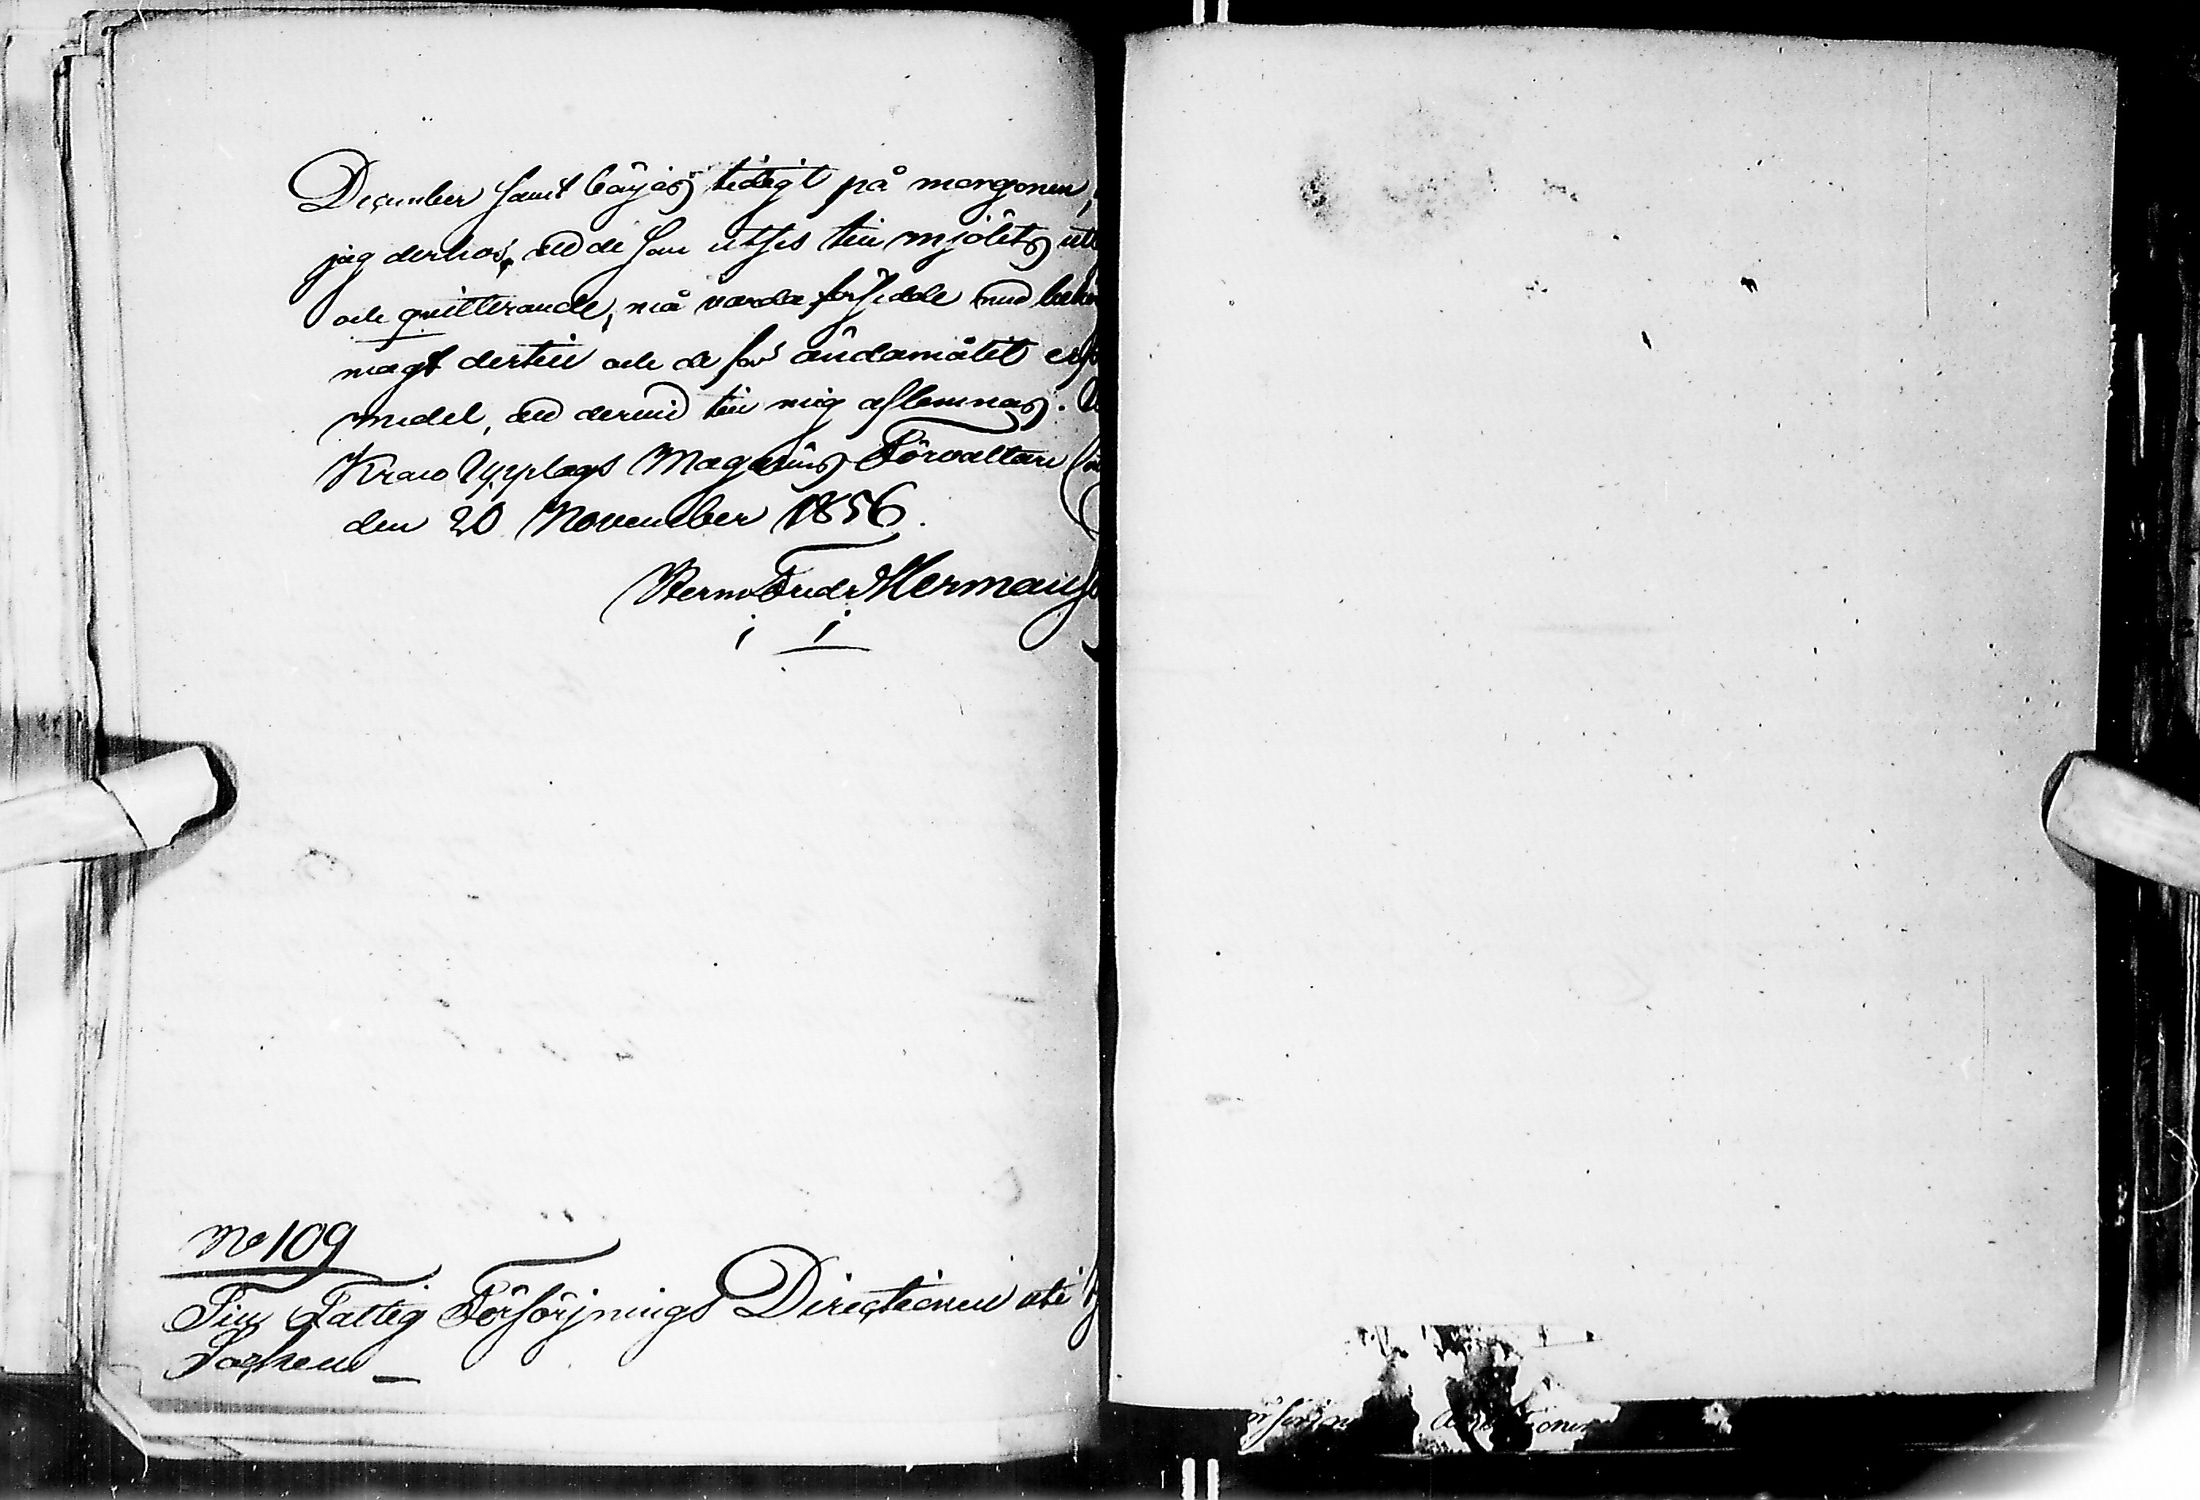 December samt börjas tidigt på morgonen,
jag derhos, att de som utses till mjölets ut
och quitterande, må varda försedde med beh
magt dertill och de för ändamålet erf
medel, att dervid till mig aflemnas.
Krono Upplags Magasins Förvaltare
den 20 November 1856.
Herm Fredr Hermans
No 109
Till Fattig Försörjnings Directionen uti
Sochen